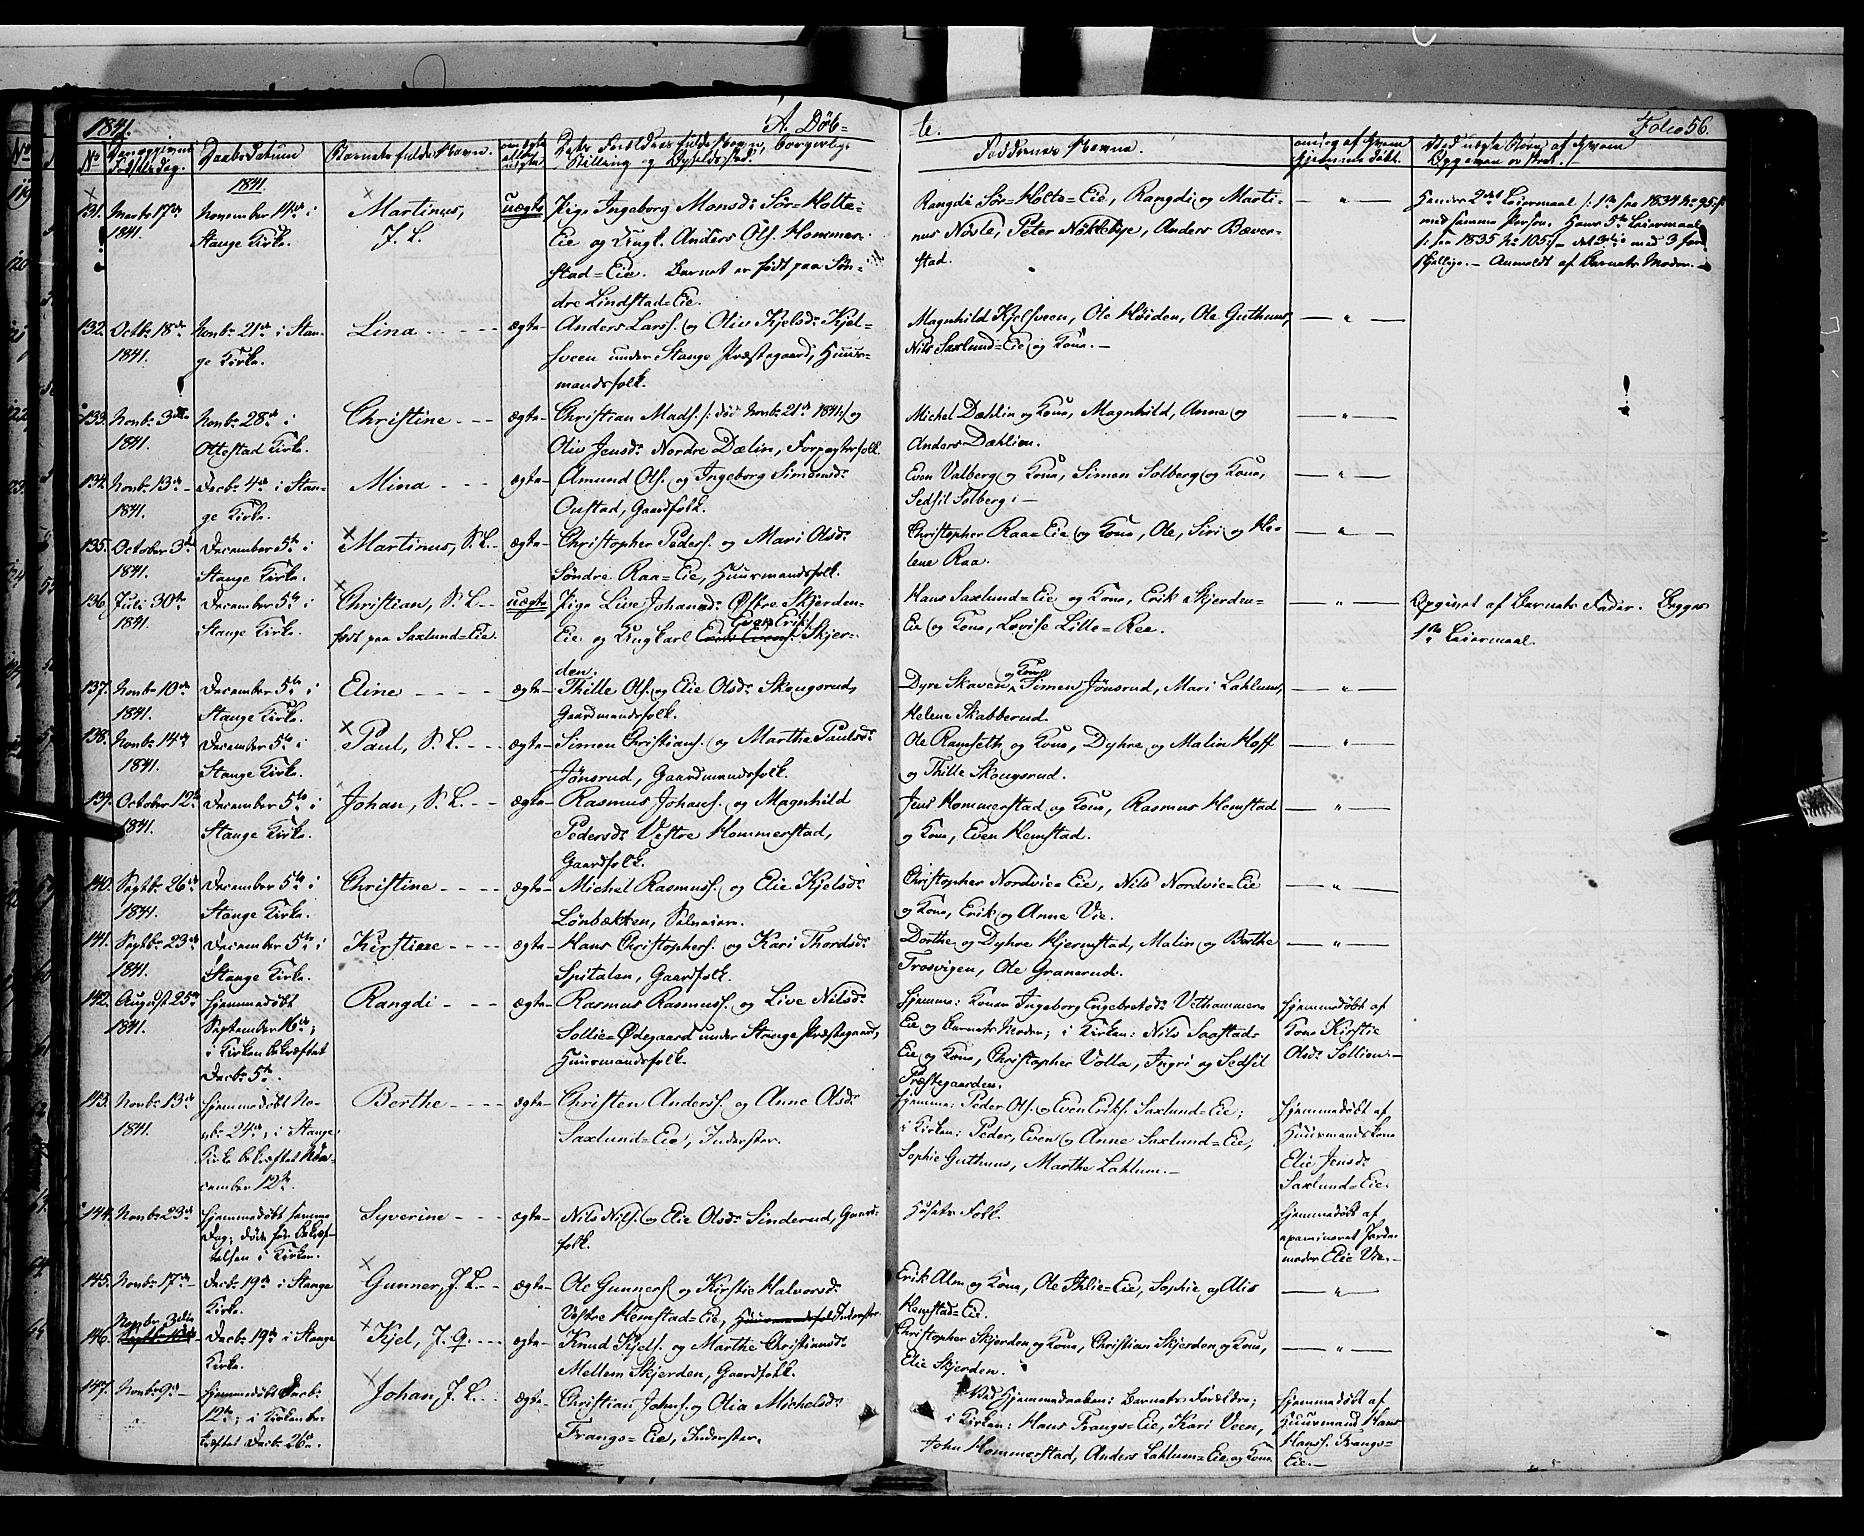 1841.
A. Døb=
te.
Folio 56.
No
Daabsdatum
Barnets fulde Navn.
Faddernes Navne.
1841.
131. Marts 17de
1841.
November 14de i
Stange Kirke.
Martinus,
J. L.
uægte
Pige Ingeborg Monsdr Sør=Holte=
Eie og Ungk. Anders Ols. Hommer=
stad=Eie. Barnet er født paa Søn=
dre Lindstad=Eie.
Rangdi Sør=Holte=Eie, Rangdi og Marti=
nus Nøsle, Peter Nøkleby, Anders Bæver=
stad.
Hendes 2det Leiermaal
med samme Person. Hans 5te Leiermaal
Anmeldt af Barnets Moder.
132. Octbr 18de
1841.
Novbr 21de i Stan=
ge Kirke.
Lina
ægte
Anders Larss. og Oliv Kjelsdr Kjel=
sveen under Stange Præstegaard, Huus=
mandsfolk.
Magnhild Kjelsveen, Ole Høiden, Ole Guthuus,
Nils Saxlund=Eie og Kone.
133. Novbr 3die
1841.
Novbr 28de i
Ottestad Kirke.
Christine
ægte
Christian Mads. /: død Novbr 21de 1841 :/ og
Oliv Jensdr Nordre Dælin, Forpagterfolk.
Michel Dæhlin og Kone, Magnhild, Anne og
Anders Dæhlien.
134. Novbr 13de
1841.
Decbr 4de i Stan=
ge Kirke.
Mina
ægte
Amund Ols. og Ingeborg Simensdr
Oustad, Gaardfolk.
Even Valberg og Kone, Simen Solberg og Kone,
Sedsil Solberg.
135. October 3die
1841.
December 5te i
Stange Kirke.
Martinus, S. L.
ægte
Christopher Peders. og Mari Olsdr
Søndre Raa=Eie, Huusmandsfolk.
Christopher Raa=Eie og Kone, Ole, Siri og He=
lene Raa.
136. Juli 30te
1841.
December 5te i
Stange Kirke.
Christian, S. L.
født paa Saxlund=Eie.
uægte
Pige Live Johansdr Østre Skjerden=
Eie og Ungkarl Even Eriks. Skjer=
den.
Hans Saxlund=Eie og Kone, Erik Skjerden=
Eie og Kone, Lovise Lille=Ree.
Opgivet af Barnets Fader. Begges
1ste Leiermaal.
137. Novbr 10de
1841.
December 5te i
Stange Kirke.
Eline
ægte
Thille Ols. og Elie Olsdr Skougsrud,
Gaardmandsfolk.
Dyre Skaven og Kone, Simen Jønsrud, Mari Lahlum,
Helene Skabberud.
138. Novbr 14de
1841.
December 5te i
Stange Kirke.
Paul, S. L.
ægte
Simen Christians. og Marthe Paulsdr
Jønsrud, Gaardmandsfolk.
Ole Ramseth og Kone, Dyhre og Malin Hoff
og Thille Skougsrud.
139. October 12te
1841.
December 5te i
Stange Kirke.
Johan, S. L.
ægte
Rasmus Johans. og Magnhild
Pedersdr Vestre Hommerstad,
Gaardfolk.
Jens Hommerstad og Kone, Rasmus Hemstad
og Kone, Even Hemstad.
140. Septbr 26de
1841.
December 5te i
Stange Kirke.
Christine
ægte
Michel Rasmuss. og Elie Kjelsdr
Lønbækken, Selveiere.
Christopher Nordvie=Eie, Nils Nordvie=Eie
og Kone, Erik og Anne Vie.
141. Septbr 23de
1841.
December 5te i
Stange Kirke.
Kirstine
ægte
Hans Christophers. og Kari Thordsdr
Spitalen, Gaardfolk.
Dorthe og Dyhre Hjermstad, Malin og Berthe
Trosvigen, Ole Granerud.
142. August 25de
1841.
Hjemmedøbt
September 16de;
i Kirken bekræftet
Decbr 5te.
Rangdi
ægte
Rasmus Rasmuss. og Live Nilsdr
Sollie=Ødegaard under Stange Præstegaard,
Huusmandsfolk.
Hjemme: Konen Ingeborg Engebretsdr Vethammer=
Eie og Barnets Moder; i Kirken: Nils Saastad=
Eie og Kone, Christopher Volla, Ingri og Sedsil
Præstegaarden.
Hjemmedøbt af
Kone Kirstie
Olsdr Sollien.
143. Novbr 13de
1841.
Hjemmedøbt No=
vbr 24de; i Stange
Kirke bekræftet De=
cember 12te.
Berthe
ægte
Christen Anderss. og Anne Olsdr
Saxlund=Eie, Inderster.
Hjemme: Peder Ols. og Even Eriks. Saxlund=Eie;
i Kirken: Peder, Even og Anne Saxlund=Eie,
Sophie Guthuus, Marthe Lahlum.
Hjemmedøbt af
Huusmandskone
Elie Jensdr
Saxlund=Eie.
144. Novbr 23de
Hjemmedøbt samme
Dag; døde før bekræf=
telsen i Kirken.
Syverine
ægte
Nils Nils. og Elie Olsdr Sinderud, Gaard=
folk.
Husets Folk.
Hjemmedøbt af
examineret Jorde=
moder Elie Vie.
145. Novbr 17de
Decbr 19de i Stange
Kirke.
Gunner, J. L.
ægte
Ole Gunners. og Kirstie Halvorsdr
Vestre Hemstad=Eie, Inderster.
Erik Alm og Kone, Ole Ihlie=Eie, Sophie og Alis
Hemstad=Eie.
146. Novbr 3die
Decbr 19de i Stange
Kirke.
Kjel, J. G.
ægte
Knud Kjels. og Marthe Christiansdr
Mellem Skjerden, Gaardfolk.
Christopher Skjerden og Kone, Christian Skjerden og Kone,
Elie Skjerden.
147. Novbr 9de
Hjemmedøbt Decbr
12te; i Kirken be=
kræftet Decbr 26de.
Johan, J. L.
ægte
Christian Johns. og Olia Michelsdr
Frangs=Eie, Inderster.
Ved Hjemmedaaben: Barnets Forældre;
i Kirken: Hans Frangs=Eie, Kari Veen,
John Hommerstad, Anders Lahlum=Eie og Kone.
Hjemmedøbt af
Huusmand Hans
Hans. Frangs=
Eie.